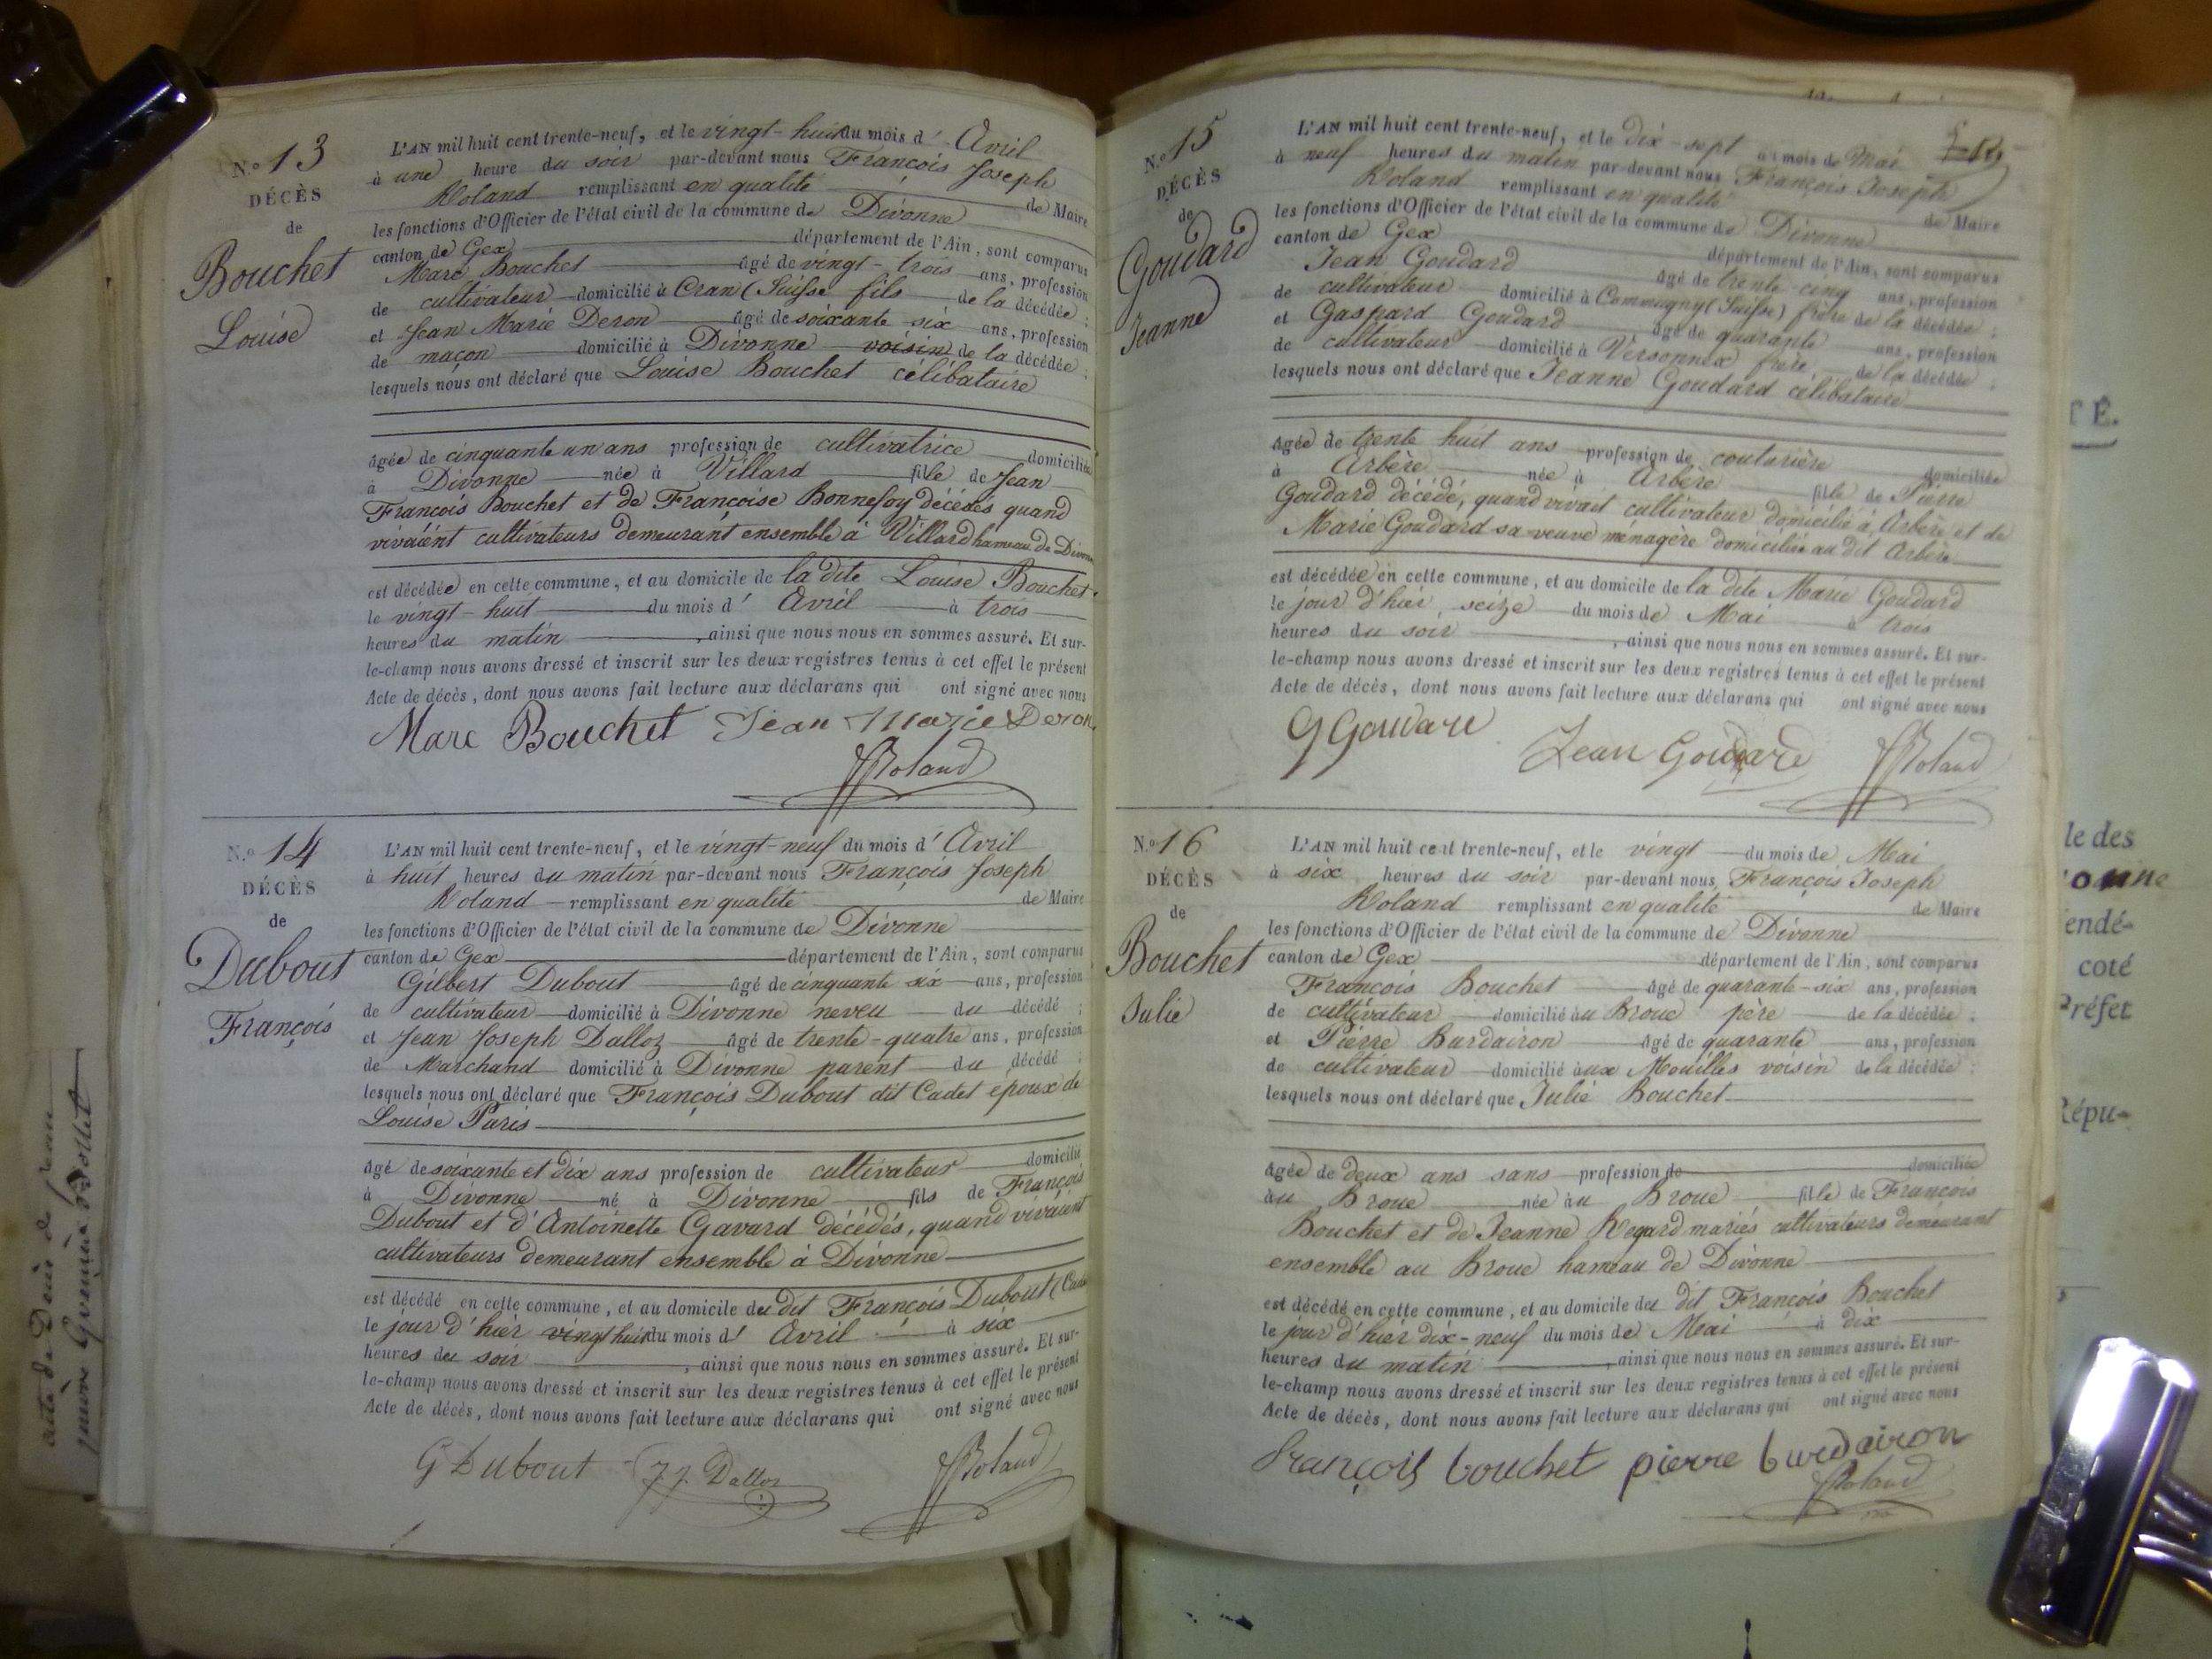 N.º 13
DÉCÈS
de
Bouchet
Louise
L'AN mil huit cent trente-neuf, et le vingt-huit du mois d' Avril
à une heure du soir par-devant nous François Joseph
Roland remplissant en qualité de Maire
les fonctions d'Officier de l'état civil de la commune de Divonne
canton de Gex département de l'Ain, sont comparus
Marc Bouchet âgé de vingt-trois ans, profession
de cultivateur domicilié à Cran (Suisse fils de la décédée ;
et Jean Marie Deron âgé de soixante six ans, profession
de maçon domicilié à Divonne voisin de la décédée ;
lesquels nous ont déclaré que Louise Bouchet célibataire
âgée de cinquante un ans profession de cultivatrice domiciliée
à Divonne née à Villard fille de Jean
François Bouchet et de Françoise Bonnefoy décédés quand
vivaient cultivateurs demeurant ensemble à Villard hameau de Divonne
est décédée en cette commune, et au domicile de la dite Louise Bouchet
le vingt-huit du mois d' Avril à trois
heures du matin , ainsi que nous nous en sommes assuré. Et sur-
le-champ nous avons dressé et inscrit sur les deux registres tenus à cet effet le présent
Acte de décès, dont nous avons fait lecture aux déclarans qui ont signé avec nous
Marc Bouchet Jean Marie Deron
Roland
N.º 14
DÉCÈS
de
Dubout
François
L'AN mil huit cent trente-neuf, et le vingt-neuf du mois d' Avril
à huit heures du matin par-devant nous François Joseph
Roland remplissant en qualité de Maire
les fonctions d'Officier de l'état civil de la commune de Divonne
canton de Gex département de l'Ain, sont comparus
Gilbert Dubout âgé de cinquante six ans, profession
de cultivateur domicilié à Divonne neveu du décédé ;
et Jean Joseph Dalloz âgé de trente-quatre ans, profession
de Marchand domicilié à Divonne parent du décédé ;
lesquels nous ont déclaré que François Dubout dit Cadet époux de
Louise Paris
âgé de soixante et dix ans profession de cultivateur domicilié
à Divonne né à Divonne fils de François
Dubout et d'Antoinette Gavard décédés, quand vivaient
cultivateurs demeurant ensemble à Divonne
est décédé en cette commune, et au domicile du dit François Dubout (Cadet
le jour d'hier vingt huit du mois d' Avril à six
heures du soir , ainsi que nous nous en sommes assuré. Et sur-
le-champ nous avons dressé et inscrit sur les deux registres tenus à cet effet le présent
Acte de décès, dont nous avons fait lecture aux déclarans qui ont signé avec nous
G Dubout J. J. Dalloz Roland
N.º 15
DÉCÈS
de
Goudard
Jeanne
L'AN mil huit cent trente-neuf, et le dix-sept du mois de Mai
à neuf heures du matin par-devant nous François Joseph
Roland remplissant en qualité de Maire
les fonctions d'Officier de l'état civil de la commune de Divonne
canton de Gex département de l'Ain, sont comparus
Jean Goudard âgé de trente-cinq ans, profession
de cultivateur domicilié à Commugny (Suisse) frère de la décédée ;
et Gaspard Goudard âgé de quarante ans, profession
de cultivateur domicilié à Versonnex frère de la décédée ;
lesquels nous ont déclaré que Jeanne Goudard célibataire
âgée de trente huit ans profession de couturière domiciliée
à Arbère née à Arbère fille de Pierre
Goudard décédé, quand vivait cultivateur domicilié à Arbère et de
Marie Goudard sa veuve ménagère domiciliée au dit Arbère
est décédée en cette commune, et au domicile de la dite Marie Goudard
le jour d'hier seize du mois de Mai à trois
heures du soir , ainsi que nous nous en sommes assuré. Et sur-
le-champ nous avons dressé et inscrit sur les deux registres tenus à cet effet le présent
Acte de décès, dont nous avons fait lecture aux déclarans qui ont signé avec nous
G Goudard Jean Goudard Roland
N.º 16
DÉCÈS
de
Bouchet
Julie
L'AN mil huit cent trente-neuf, et le vingt du mois de Mai
à six heures du soir par-devant nous François Joseph
Roland remplissant en qualité de Maire
les fonctions d'Officier de l'état civil de la commune de Divonne
canton de Gex département de l'Ain, sont comparus
François Bouchet âgé de quarante-six ans, profession
de cultivateur domicilié au Broue père de la décédée ;
et Pierre Burdairon âgé de quarante ans, profession
de cultivateur domicilié aux Mouilles voisin de la décédée ;
lesquels nous ont déclaré que Julie Bouchet
âgée de deux ans sans profession de domiciliée
au Broue née au Broue fille de François
Bouchet et de Jeanne Regard mariés cultivateurs demeurant
ensemble au Broue hameau de Divonne
est décédé en cette commune, et au domicile du dit François Bouchet
le jour d'hier dix-neuf du mois de Mai à dix
heures du matin , ainsi que nous nous en sommes assuré. Et sur-
le-champ nous avons dressé et inscrit sur les deux registres tenus à cet effet le présent
Acte de décès, dont nous avons fait lecture aux déclarans qui ont signé avec nous
françois bouchet pierre burdairon
Roland
TÉ.
le des
endé-
coté
Préfet
Répu-